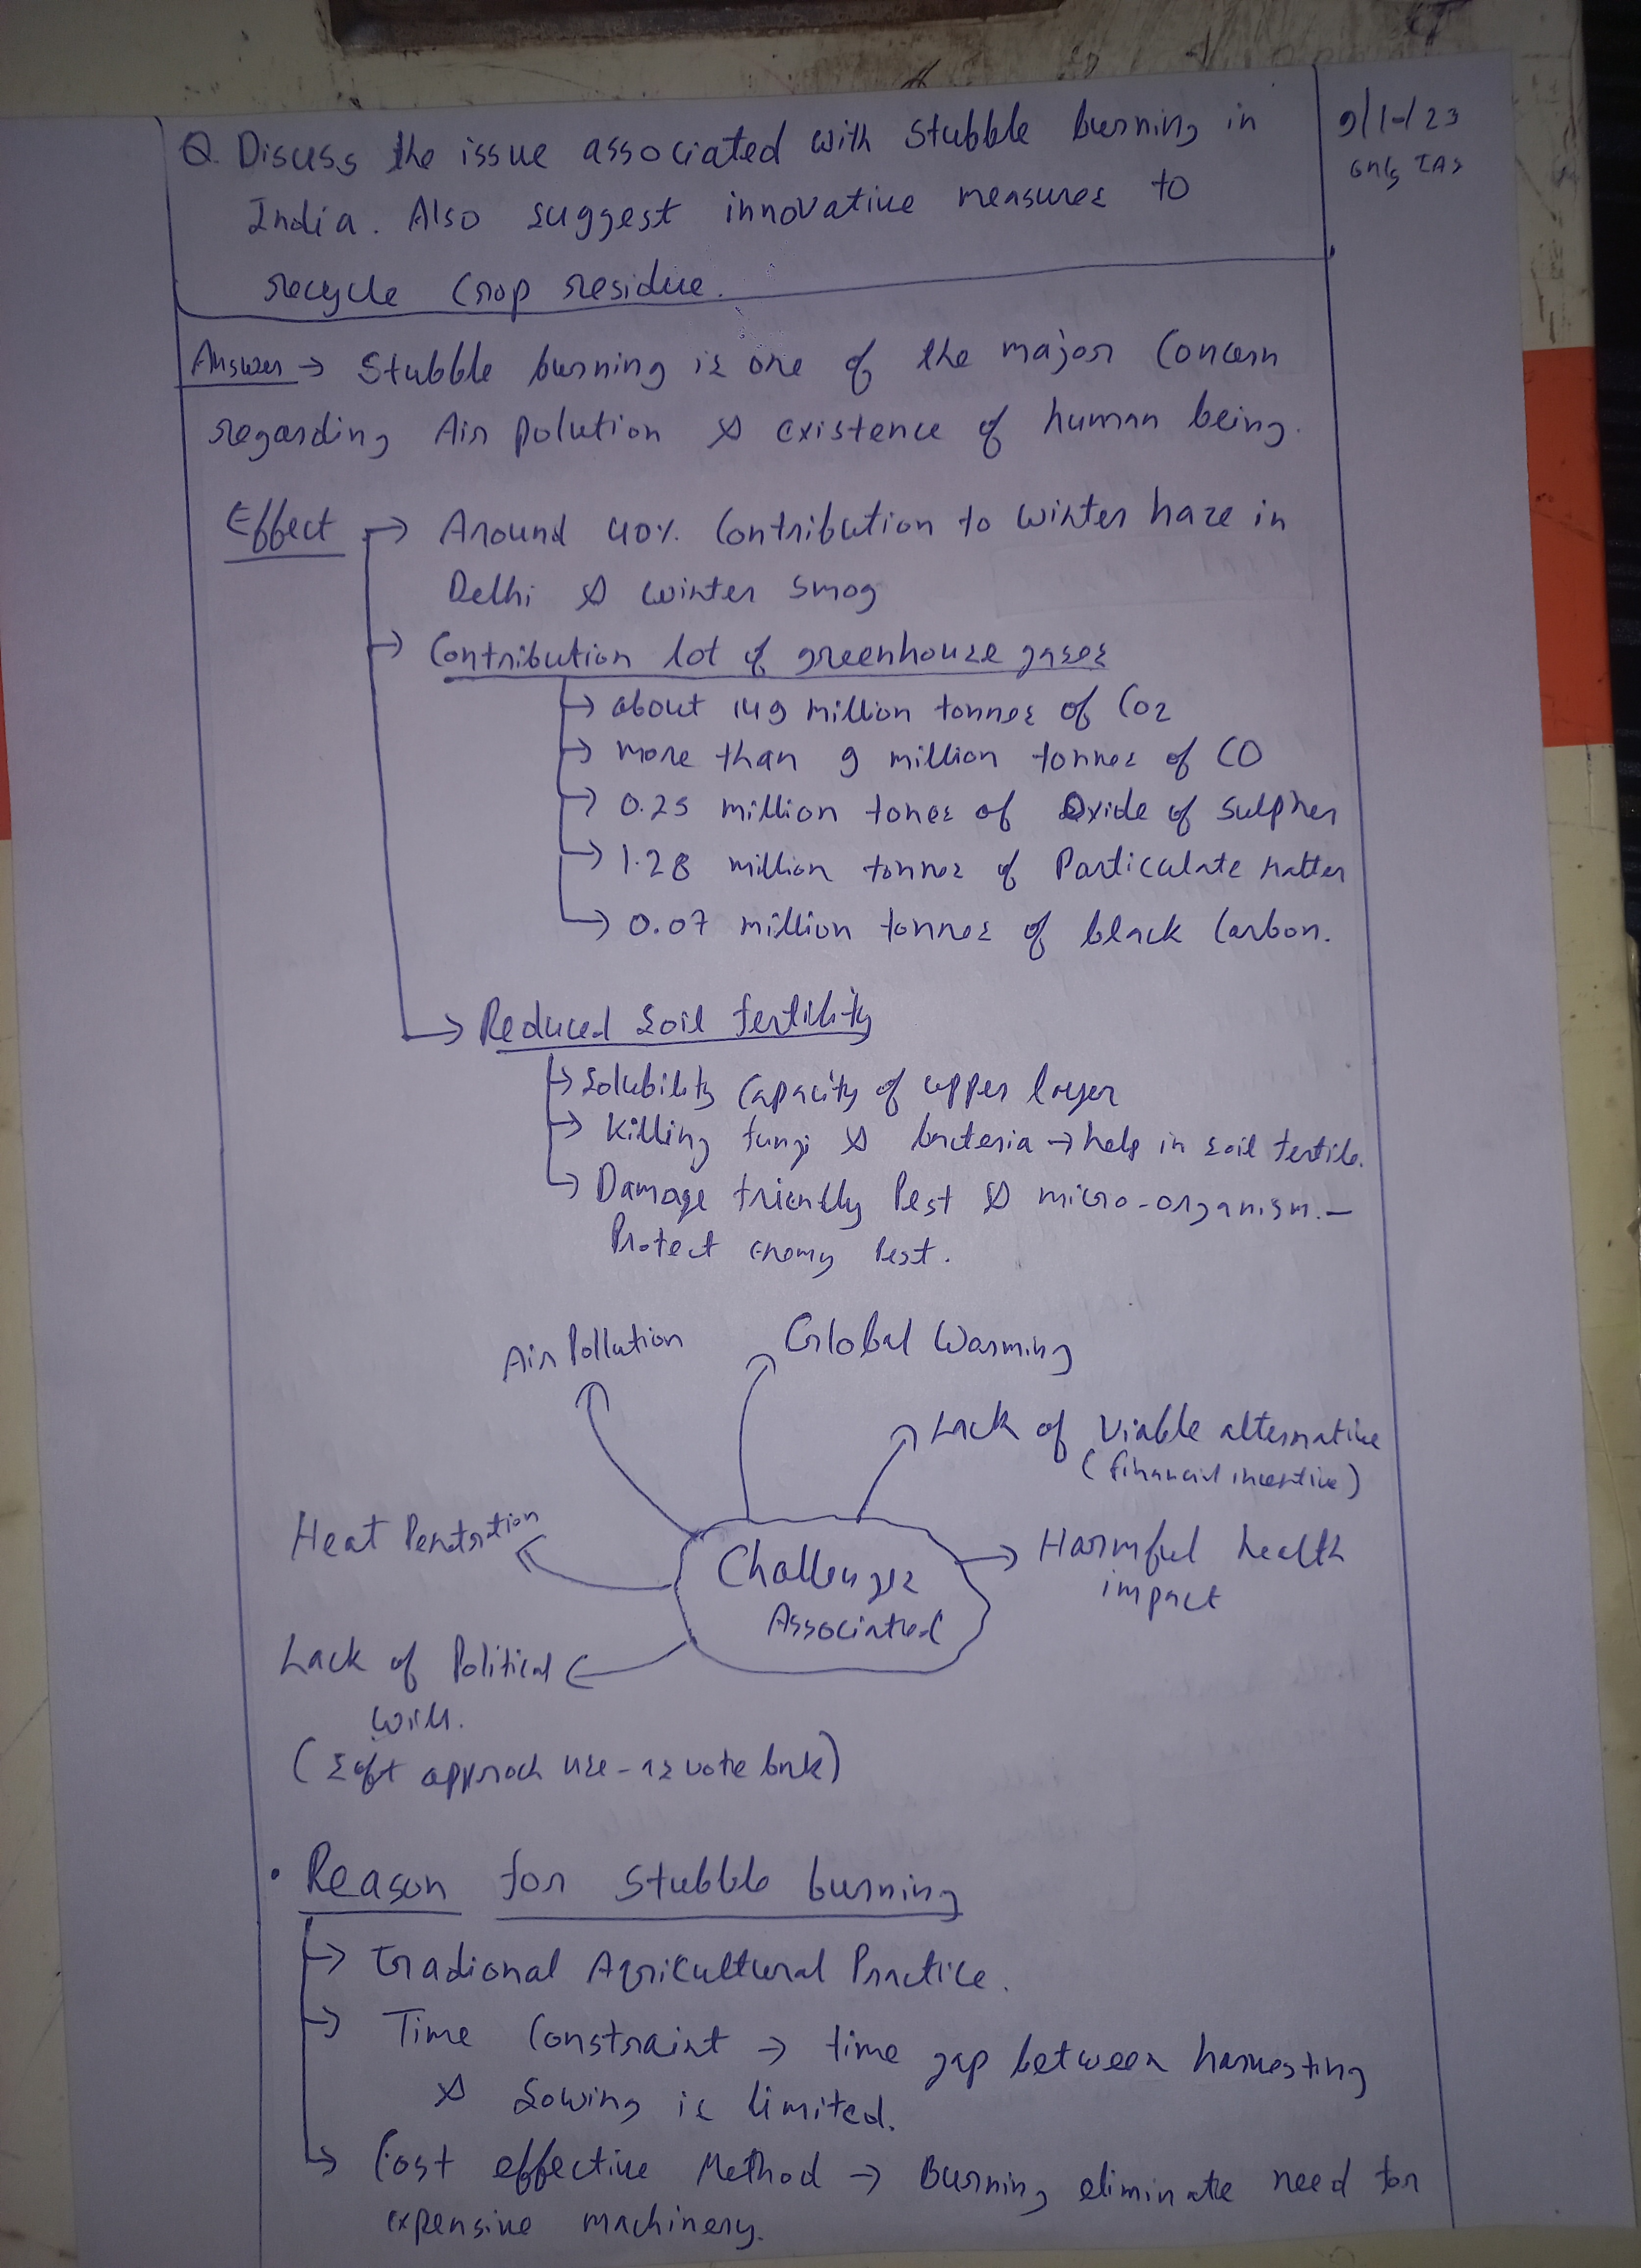 Q. Discuss the issue associated with stubble burning in
India. Also suggest innovative measures to
recycle crop residue.
9/10/23
only IAS
Answer → Stubble burning is one of the major concern
regarding Air polution & existence of human being.
Effect → Around 40% contribution to winter haze in
Delhi & winter smog
→ Contribution lot of greenhouse gases
→ about 149 million tonnes of CO2
→ more than 9 million tonnes of CO
→ 0.25 million tones of Oxide of sulpher
→ 1.28 million tonnes of Particulate Matter
→ 0.07 million tonnes of black carbon.
→ Reduced soil fertility
→ solubility capacity of upper layer
→ killing fungi & bacteria → help in soil fertile.
→ Damage friendly Pest & micro-organism. –
Protect enemy Pest.
Air Pollution
Global Warming
Lack of viable alternative
(financial incentive)
Heat Penetration
Challenges
Associated
Harmful health
impact
Lack of Political
will.
(soft approch use - as vote bnk)
• Reason for stubble burning
→ Tradional Agricultural Practice.
→ Time constraint → time gap between harvesting
& sowing is limited.
→ Cost effective Method → Burning eliminate need for
expensive machinery.